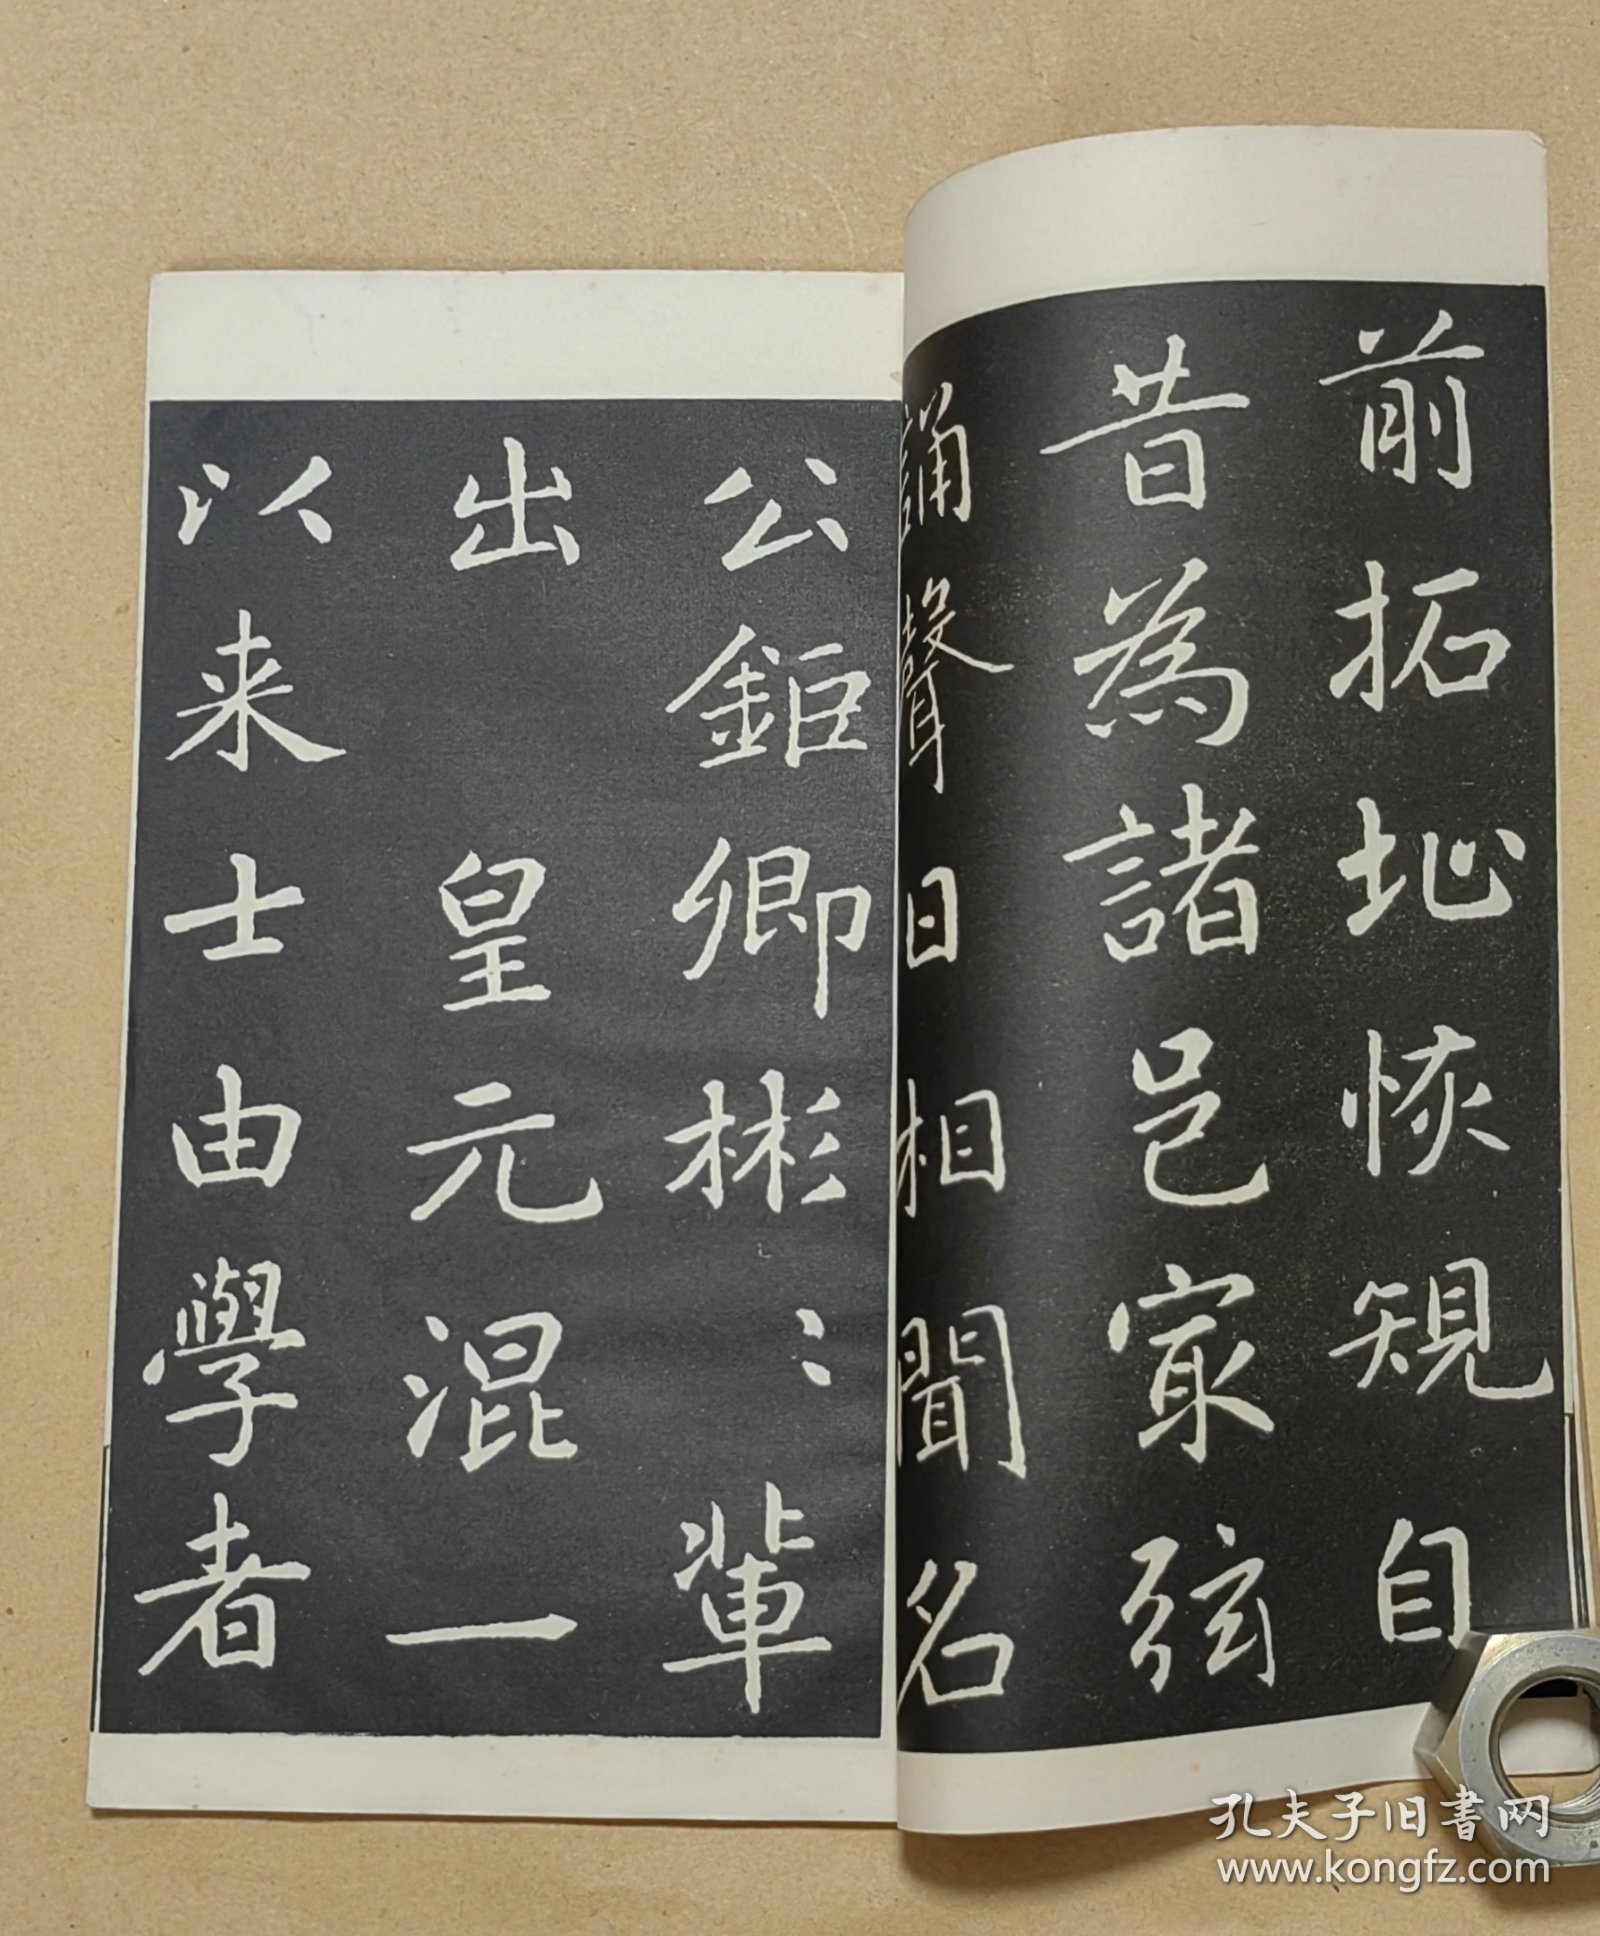 前拓址恢䂓自
昔為諸邑冣弦
誦聲日相聞名
公鉅卿彬〻輩
出皇元混一
以来士由學者
孔夫子旧書网
www.kongfz.com